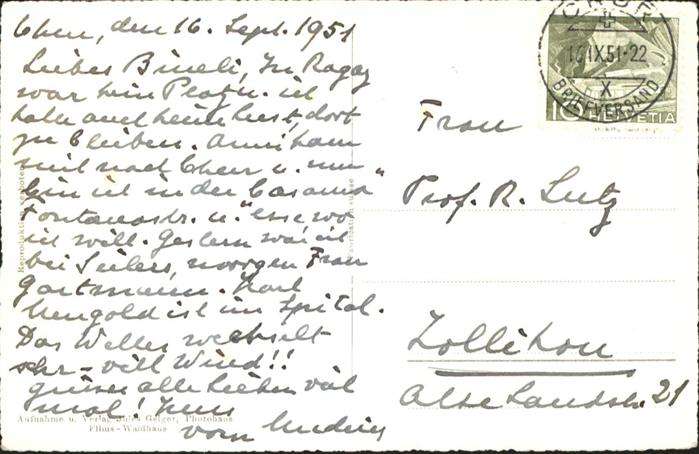 Chur, den 16. Sept. 1951
Liebes Bineli, In Ragaz
war kein Platz u. ich
hatte auch keine Lust, dort
zu bleiben. Anni kam
mit nach Chur u. nun
bin ich in der "Casanna"
Fontanastr. u. esse wo
ich will. Gestern war ich
bei Seilers, morgen Frau
Gartmann. Karl
Mengold ist im Spital.
Das Wetter wechselt
sehr - viel Wind!!
Grüsse alle Lieben viel
mal!
vom
Frau
Prof. R. Lutz
Zollikon
Alte Landstr. 21
CHUR
16.IX.51-22
X
BRIEFVERSAND
10 HELVETIA
Reproduktion verboten
Aufnahme u. Verlag Jules Geiger, Photohaus
Flims-Waldhaus